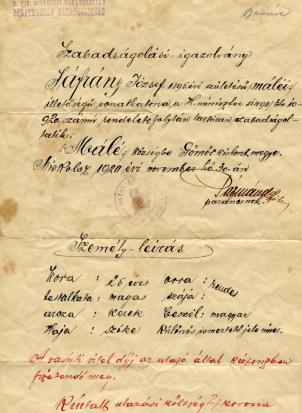 Szabadságolási igazolvány
Safrány József 1895 évi születésű máléi
illetőségű vonathonvéd a H. miniszter
számú rendelete folytán tartósan szabadságol-
tatik.
Málé községbe Gömör kishont megye.
Miskolcz 1920 évi november hó 30.án
parancsnok.
Személy-leírás
Kora : 26 éves orra : rendes
testalkata : magas szája :
arcza : kerek beszél : magyar
Haja : szőke Különös ismertető jele nincs.
A vasúti vitel díj az utazó által készpénzben
fizetendő meg.
utazási költség korona